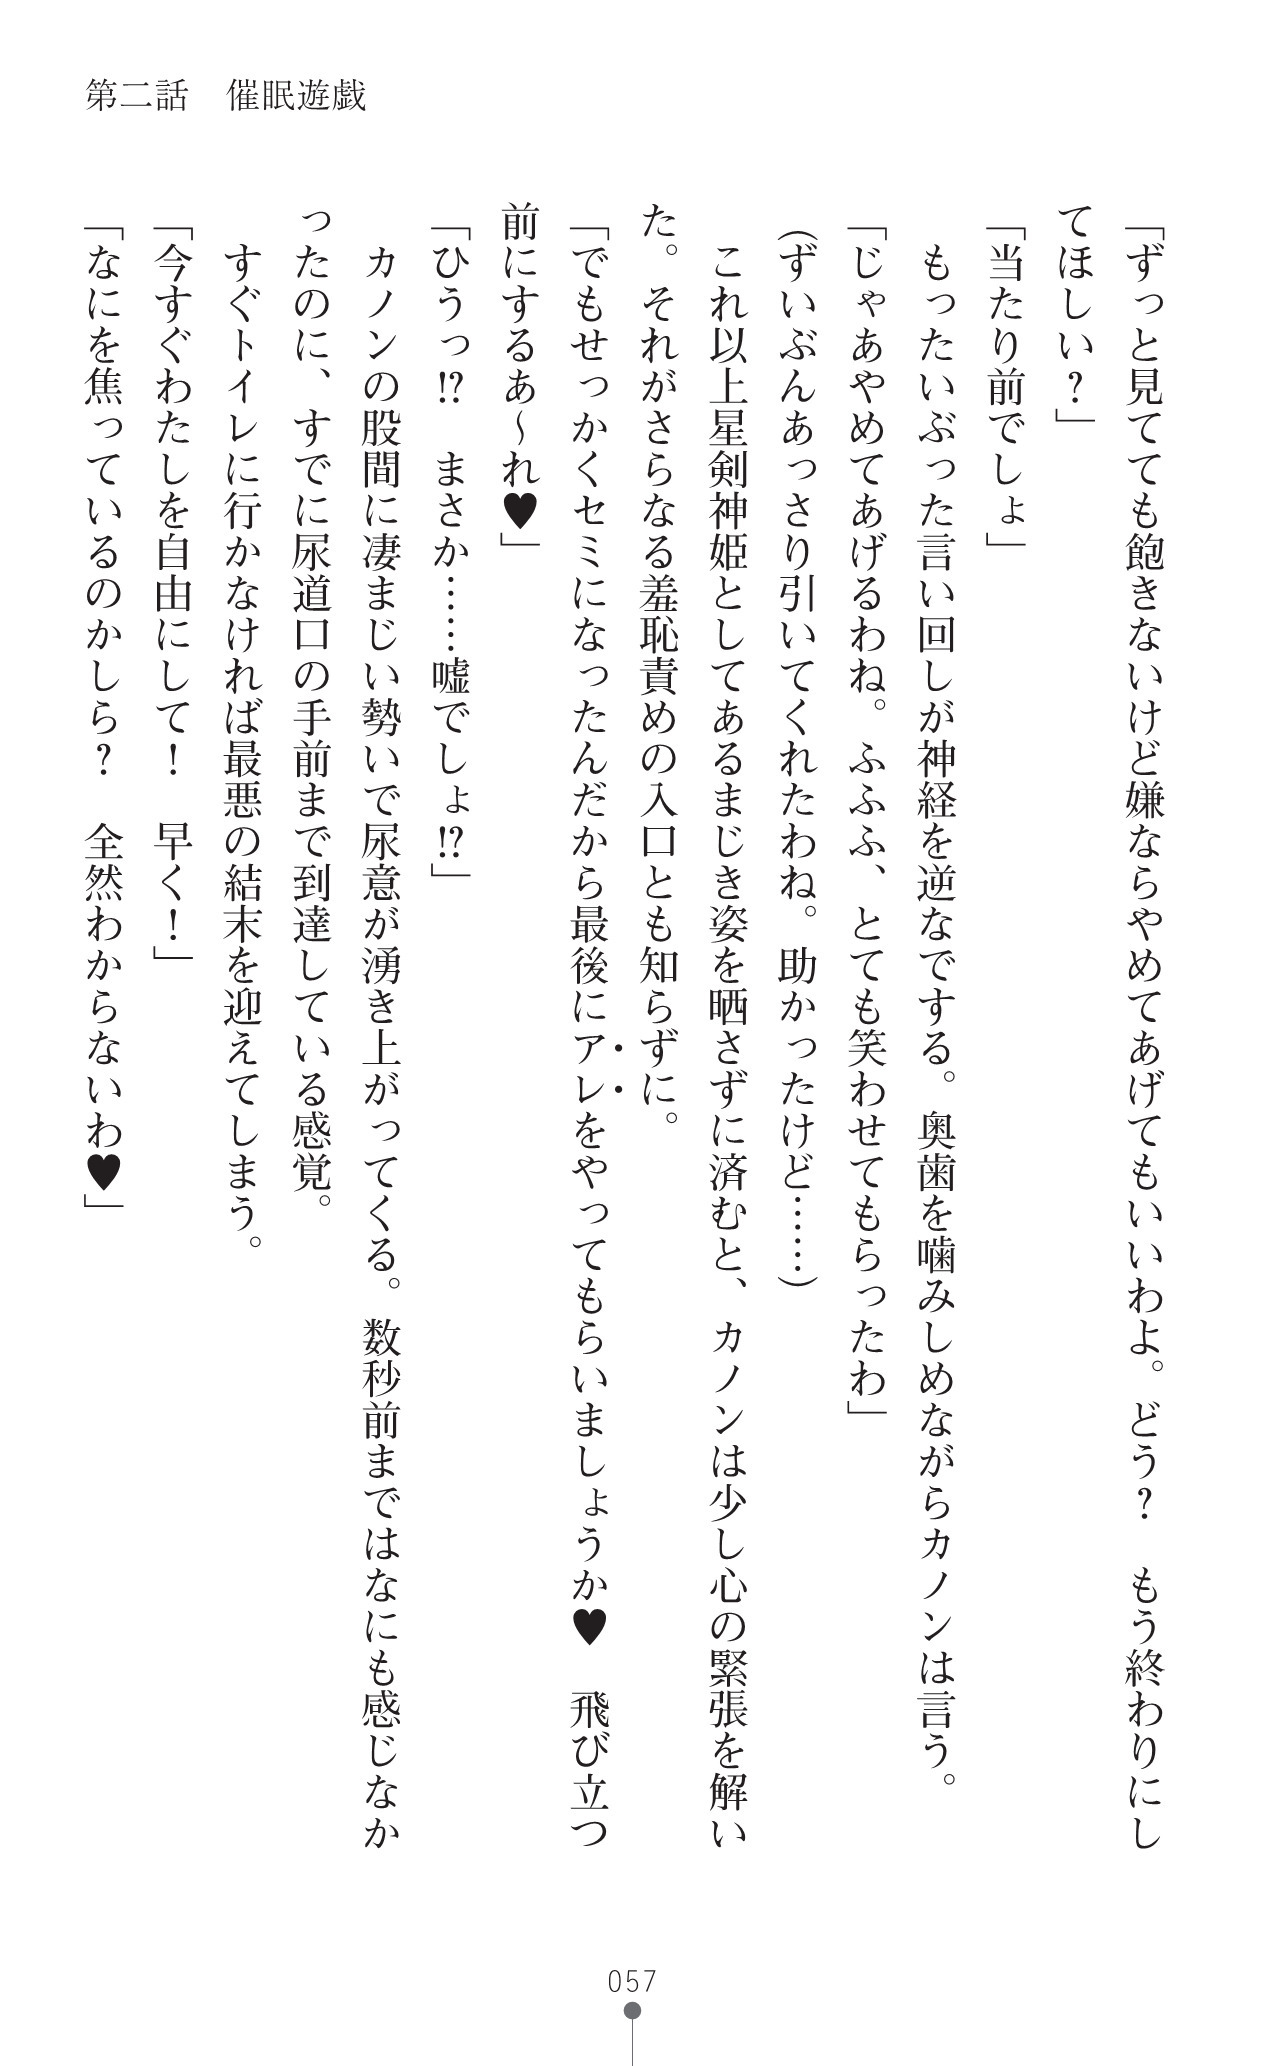 第二話　催眠遊戯
「ずっと見てても飽きないけど嫌ならやめてあげてもいいわよ。どう？　もう終わりにし
てほしい？」
「当たり前でしょ」
　もったいぶった言い回しが神経を逆なでする。奥歯を噛みしめながらカノンは言う。
「じゃあやめてあげるわね。ふふふ、とても笑わせてもらったわ」
（ずいぶんあっさり引いてくれたわね。助かったけど……）
　これ以上星剣神姫としてあるまじき姿を晒さずに済むと、カノンは少し心の緊張を解い
た。それがさらなる羞恥責めの入口とも知らずに。
「でもせっかくセミになったんだから最後にアレをやってもらいましょうか♥　飛び立つ
前にするあ〜れ♥」
「ひうっ!?　まさか……嘘でしょ!?」
　カノンの股間に凄まじい勢いで尿意が湧き上がってくる。数秒前まではなにも感じなか
ったのに、すでに尿道口の手前まで到達している感覚。
　すぐトイレに行かなければ最悪の結末を迎えてしまう。
「今すぐわたしを自由にして！　早く！」
「なにを焦っているのかしら？　全然わからないわ♥」
057